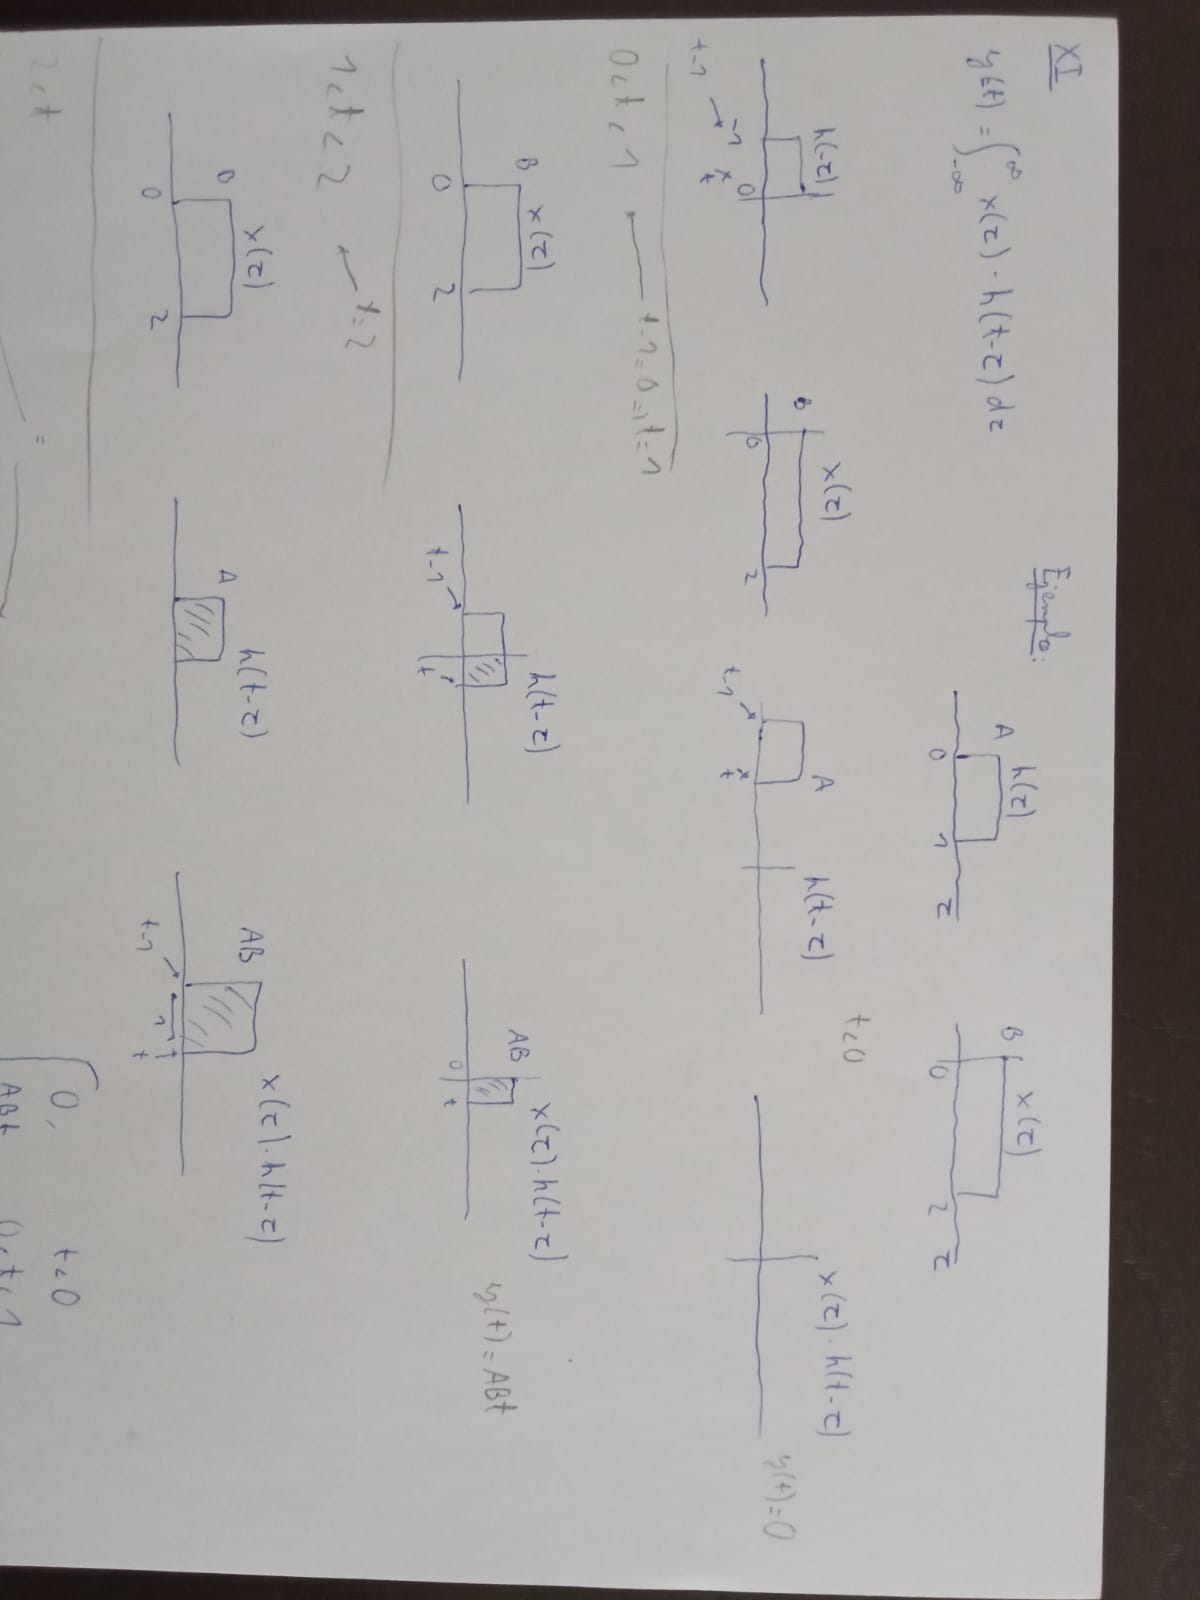 XI
Ejemplo:
y(t) = ∫_{-∞}^{∞} x(τ) · h(t-τ) dτ
A h(τ) 0 1 τ
B x(τ) 0 2 τ
t<0
h(-τ) -1 0 t-1 t
x(τ) B 0 2
A h(t-τ) t-1 t
x(τ) · h(t-τ)
y(t)=0
0<t<1 t-1=0 ⇒ t=1
B x(τ) 0 2
h(t-τ) t-1 t
AB x(τ) · h(t-τ) 0 t
y(t)=ABt
1<t<2 t=2
B x(τ) 0 2
A h(t-τ)
AB x(τ) · h(t-τ) t-1 1 t
2<t =
0, t<0
ABt 0<t<1